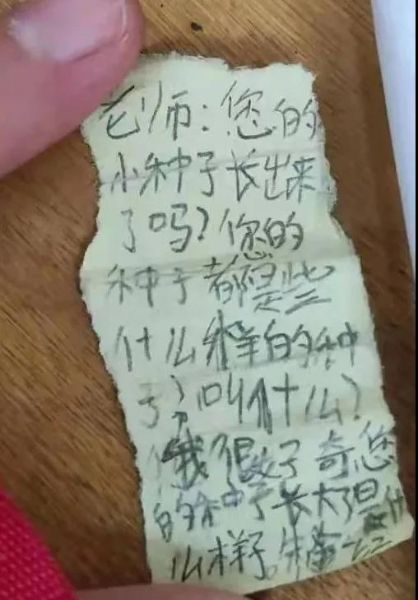 老师:您的
小种子长出来
了吗?您的
种子都是些
什么样的种
子,叫什么?
我很好奇您
的种子长大了是什
么样子。